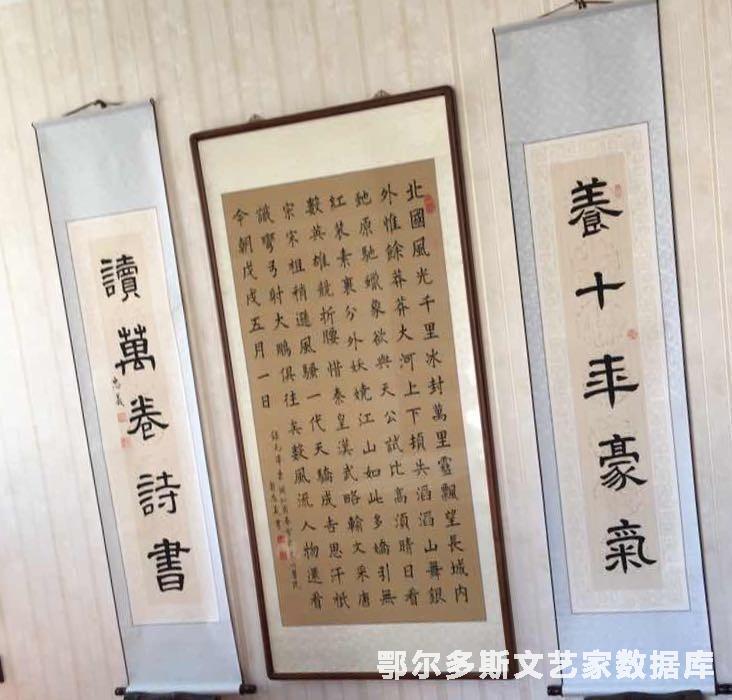 養十年豪氣
北國風光千里冰封萬里雪飄望長城內
外惟餘莽莽大河上下頓失滔滔山舞銀
虵原馳蠟象欲與天公試比高須晴日看
紅裝素裹分外妖嬈江山如此多嬌引無
數英雄競折腰惜秦皇漢武略輸文采唐
宗宋祖稍遜風騷一代天驕成吉思汗祇
識彎弓射大鵰俱往矣數風流人物還看
今朝戊戌五月一日
錄毛澤東詞沁園春雪
讀萬卷詩書
忠義
鄂尔多斯文艺家数据库